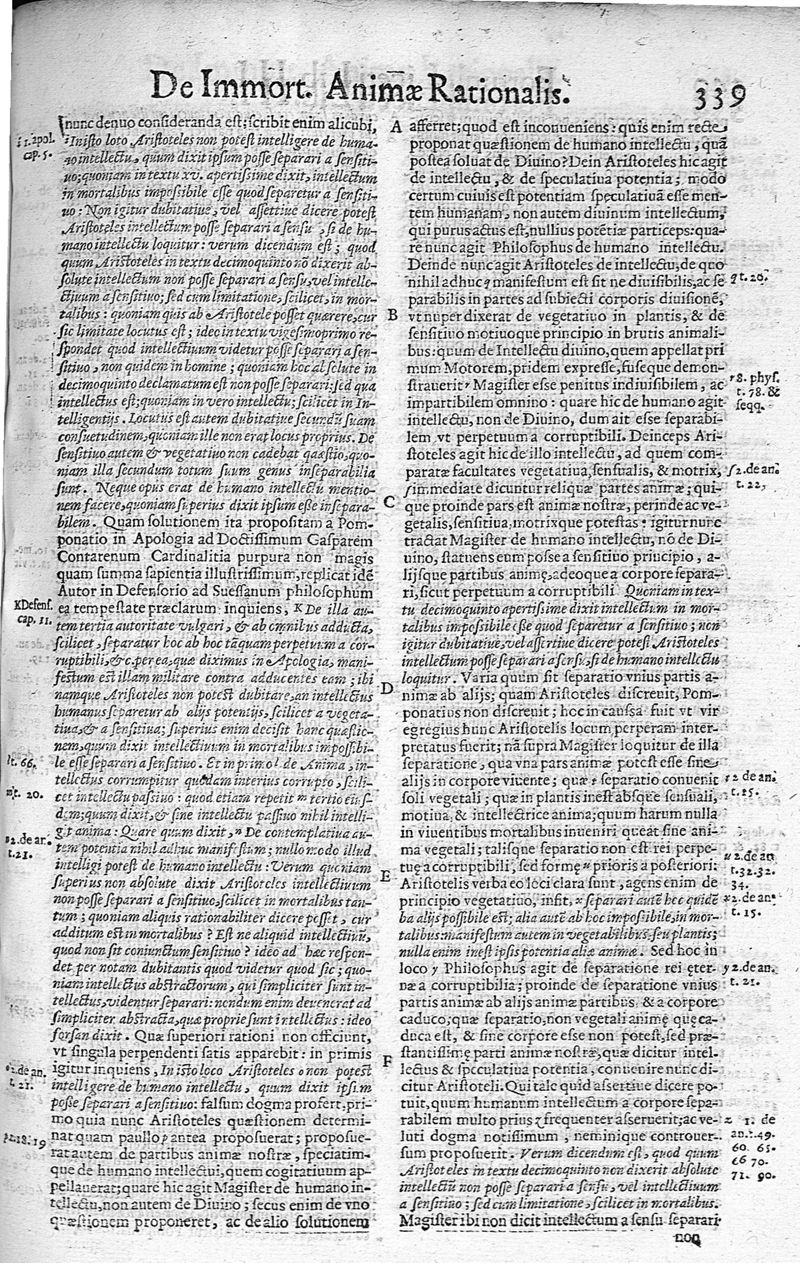 De Immort. Animæ Rationalis.
339
nunc denuo consideranda est; scribit enim alicubi,
i 1. apol.
cap. 5.
i In isto loto Aristoteles non potest intelligere de huma-
no intellectu, quum dixit ipsum posse separari a sensiti-
uo; quoniam in textu xv. apertissime dixit, intellectum
in mortalibus impossibile esse quod separetur a sensiti-
uo: Non igitur dubitatiue, vel assertiue dicere potest
Aristoteles intellectum posse separari a sensu, si de hu-
mano intellectu loquitur: verum dicendum est; quod
quum Aristoteles in textu decimoquinto nō dixerit ab-
solute intellectum non posse separari a sensu, vel intelle-
ctiuum a sensitiuo; sed cum limitatione, scilicet, in mor-
talibus: quoniam quis ab Aristotele posset quærere, cur
sic limitate locutus est; ideo in textu vigesimoprimo re-
spondet quod intellectiuum videtur posse separari a sen-
sitiuo, non quidem in homine; quoniam hoc absolute in
decimoquinto declamatum est non posse separari: sed qua
intellectus est; quoniam in vero intellectu; scilicet in In-
telligentijs. Locutus est autem dubitatiue secundū suam
consuetudinem, quoniam ille non erat locus proprius. De
sensitiuo autem & vegetatiuo non cadebat quæstio, quo-
niam illa secundum totum suum genus inseparabilia
sunt. Neque opus erat de humano intellectu mentio-
nem facere, quoniam superius dixit ipsum esse insepara-
bilem. Quam solutionem ita propositam a Pom-
ponatio in Apologia ad Doctissimum Gasparem
Contarenum Cardinalitia purpura non magis
quam summa sapientia illustrissimum, replicat idē
Autor in Defensorio ad Suessanum philosophum
K Defens.
cap. 11.
ea tempestate præclarum inquiens, K De illa au-
tem tertia autoritate vulgari, & ab omnibus adducta,
scilicet, separatur hoc ab hoc tāquam perpetuum a cor-
ruptibili, &c. per ea, quæ diximus in Apologia, mani-
festum est illam militare contra adducentes eam; ibi
namque Aristoteles non potest dubitare, an intellectus
humanus separetur ab alijs potentijs, scilicet a vegeta-
tiua, & a sensitiua; superius enim decisit hanc quæstio-
nem, quum dixit intellectiuum in mortalibus impossibi-
l t. 66.
le esse separari a sensitiuo. Et in primo l de Anima, in-
tellectus corrumpitur quodam interius corrupto, scili-
m t. 20.
cet intellectu passiuo: quod etiam repetit m tertio eius-
dem; quum dixit, & sine intellectu passiuo nihil intelli-
git anima: Quare quum dixit, n De contemplatiua au-
n 2. de an.
t. 21.
tem potentia nihil adhuc manifestum; nullo modo illud
intelligi potest de humano intellectu: Verum quoniam
superius non absolute dixit Aristoteles intellectiuum
non posse separari a sensitiuo, scilicet in mortalibus tan-
tum; quoniam aliquis rationabiliter dicere posset, cur
additum est in mortalibus? Est ne aliquid intellectiuū,
quod non sit coniunctum sensitiuo? ideo ad hæc respon-
det per notam dubitantis quod videtur quod sic; quo-
niam intellectus abstractorum, qui simpliciter sunt in-
tellectus, videntur separari: nondum enim deuenerat ad
simpliciter abstracta, quæ proprie sunt intellectus: ideo
forsan dixit. Quæ superiori rationi non officiunt,
vt singula perpendenti satis apparebit: in primis
o 2. de an.
t. 21.
igitur inquiens, In isto loco Aristoteles o non potest
intelligere de humano intellectu, quum dixit ipsum
posse separari a sensitiuo: falsum dogma profert, pri-
mo quia nunc Aristoteles quæstionem determi-
p t. 18. 19
nat quam paullo p antea proposuerat; proposue-
rat autem de partibus animæ nostræ, speciatim-
que de humano intellectui, quem cogitatiuum ap-
pellauerat; quare hic agit Magister de humano in-
tellectu, non autem de Diuino; secus enim de vno
quæstionem proponeret, ac de alio solutionem
A
B
C
D
E
F
afferret; quod est inconueniens: quis enim recte
proponat quæstionem de humano intellectu, quā
postea soluat de Diuino? Dein Aristoteles hic agit
de intellectu, & de speculatiua potentia; modo
certum cuiuis est potentiam speculatiuā esse men-
tem humanam, non autem diuinum intellectum,
qui purus actus est, nullius potētiæ particeps: qua-
re nunc agit Philosophus de humano intellectu.
Deinde nunc agit Aristoteles de intellectu, de quo
q t. 20.
nihil adhuc q manifestum est sit ne diuisibilis, ac se
parabilis in partes ad subiecti corporis diuisionē,
vt nuper dixerat de vegetatiuo in plantis, & de
sensitiuo motiuoque principio in brutis animali-
bus: quum de Intellectu diuino, quem appellat pri
mum Motorem, pridem expresse, fuseque demon-
r 8. phys.
t. 78. &
seqq.
strauerit r Magister esse penitus indiuisibilem, ac
impartibilem omnino: quare hic de humano agit
intellectu, non de Diuino, dum ait esse separabi-
lem vt perpetuum a corruptibili. Deinceps Ari-
stoteles agit hic de illo intellectu, ad quem com-
s 2. de an.
t. 22,
paratæ facultates vegetatiua, sensualis, & motrix,
s immediate dicuntur reliquæ partes animæ; qui-
que proinde pars est animæ nostræ, perinde ac ve-
getalis, sensitiua, motrixque potestas: igitur nunc
tractat Magister de humano intellectu, nō de Di-
uino, statuens eum posse a sensitiuo principio, a-
lijsque partibus animę, adeoque a corpore separa-
ri, sicut perpetuum a corruptibili Quoniam in tex-
tu decimoquinto apertissime dixit intellectum in mor-
talibus impossibile esse quod separetur a sensitiuo; non
igitur dubitatiue, vel assertiue dicere potest Aristoteles
intellectum posse separari a sensu, si de humano intellectu
loquitur. Varia quum sit separatio vnius partis a-
nimæ ab alijs; quam Aristoteles discreuit, Pom-
ponatius non discreuit; hoc in caussa fuit vt vir
egregius hunc Aristotelis locum perperam inter-
pretatus fuerit; nā supra Magister loquitur de illa
separatione, qua vna pars animæ potest esse sine
t 2 de an.
t. 15.
alijs in corpore viuente; quæ t separatio conuenit
soli vegetali; quæ in plantis inest absque sensuali,
motiua, & intellectrice anima; quum harum nulla
in viuentibus mortalibus inueniri queat sine ani-
ma vegetali; talisque separatio non est rei perpe-
u 2. de an
t. 31. 32.
34.
tuę a corruptibili, sed formę u prioris a posteriori:
Aristotelis verba eo loci clara sunt, agens enim de
x 2. de an.
t. 15.
principio vegetatiuo, infit, x separari autē hec quidē
ba alijs possibile est; alia autē ab hoc impossibile, in mor-
talibus: manifestum autem in vegetabilibus, seu plantis;
nulla enim inest ipsis potentia aliæ animæ. Sed hoc in
y 2. de an.
t. 21.
loco y Philosophus agit de separatione rei eter-
næ a corruptibilia; proinde de separatione vnius
partis animæ ab alijs animæ partibus, & a corpore
caduco; quæ separatio, non vegetali animę quę ca-
duca est, & sine corpore esse non potest, sed præ-
stantissimę parti animæ nostræ, quæ dicitur intel-
lectus & speculatiua potentia, conuenire nunc di-
citur Aristoteli. Qui tale quid assertiue dicere po-
tuit, quum humanum intellectum a corpore sepa-
z 1. de
an. t. 49.
60. 65.
66 70.
71. 90.
rabilem multo prius z frequenter asseruerit; ac ve-
luti dogma notissimum, neminique controuer-
sum proposuerit. Verum dicendum est, quod quum
Aristoteles in textu decimoquinto non dixerit absolute
intellectū non posse separari a sensu, vel intellectiuum
a sensitiuo; sed cum limitatione, scilicet in mortalibus.
Magister ibi non dicit intellectum a sensu separari
non